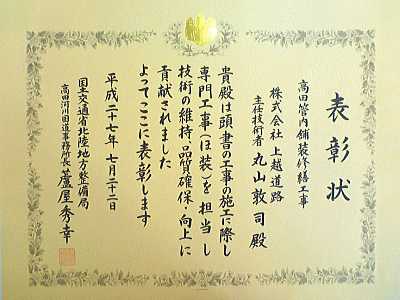 表彰状
高田管内舗装修繕工事
株式会社 上越道路
主任技術者 丸山敦司殿
貴殿は頭書の工事の施工に際し
専門工事(ほ装)を担当し
技術の維持、品質確保・向上に
貢献されました
よってここに表彰します
平成二十七年 七月二十二日
国土交通省北陸地方整備局
高田河川国道事務所長 蘆屋秀幸